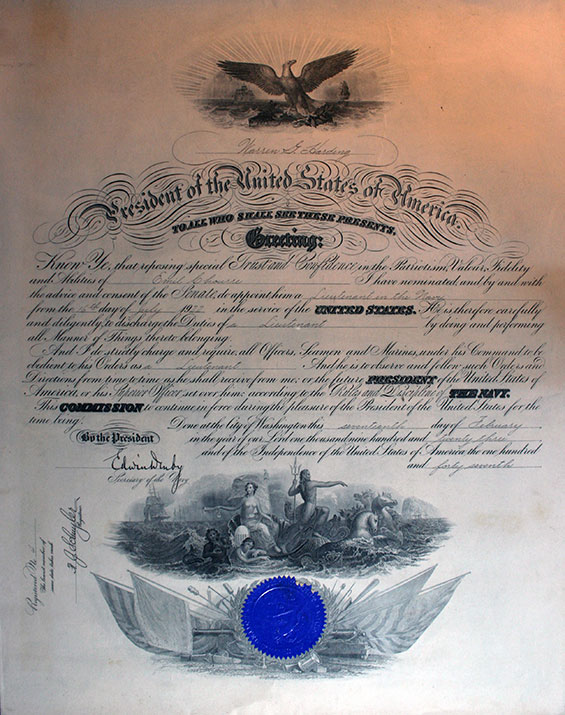 Warren G. Harding
President of the United States of America.
TO ALL WHO SHALL SEE THESE PRESENTS,
Greeting:
Know Ye, that reposing special Trust and Confidence in the Patriotism, Valour, Fidelity
and Abilities of Emil I have nominated and by and with
the advice and consent of the Senate, do appoint him a Lieutenant in the Navy
from the day of July 19 in the service of the UNITED STATES. He is therefore carefully
and diligently to discharge the Duties of a Lieutenant by doing and performing
all Manner of Things thereto belonging.
And I do strictly charge and require, all Officers, Seamen and Marines, under his Command to be
obedient to his Orders as a Lieutenant And he is to observe and follow such Orders and
Directions from time to time as he shall receive from me, or the future PRESIDENT of the United States of
America, or his Superior Officer set over him, according to the Rules and Discipline of THE NAVY.
This COMMISSION to continue in force during the pleasure of the President of the United States for the
time being. Done at the City of Washington this seventeenth day of February
By the President in the year of our Lord one thousand nine hundred and twenty three
and of the Independence of the United States of America the one hundred
Edwin Denby and forty seventh
Secretary of the Navy
Registered No.